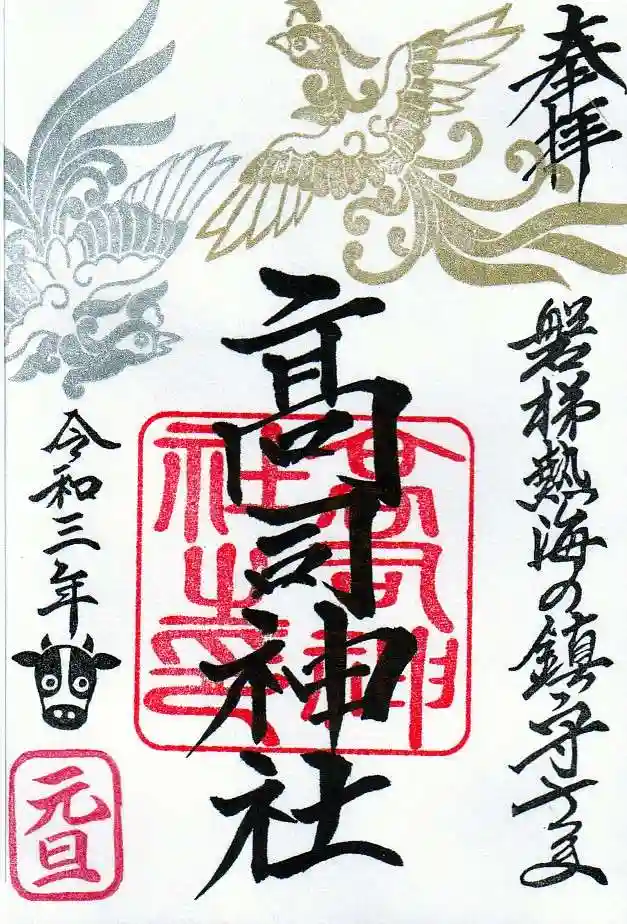 奉拝
磐梯熱海の鎮守さま
髙司神社
高司神
社之
令和三年
元旦